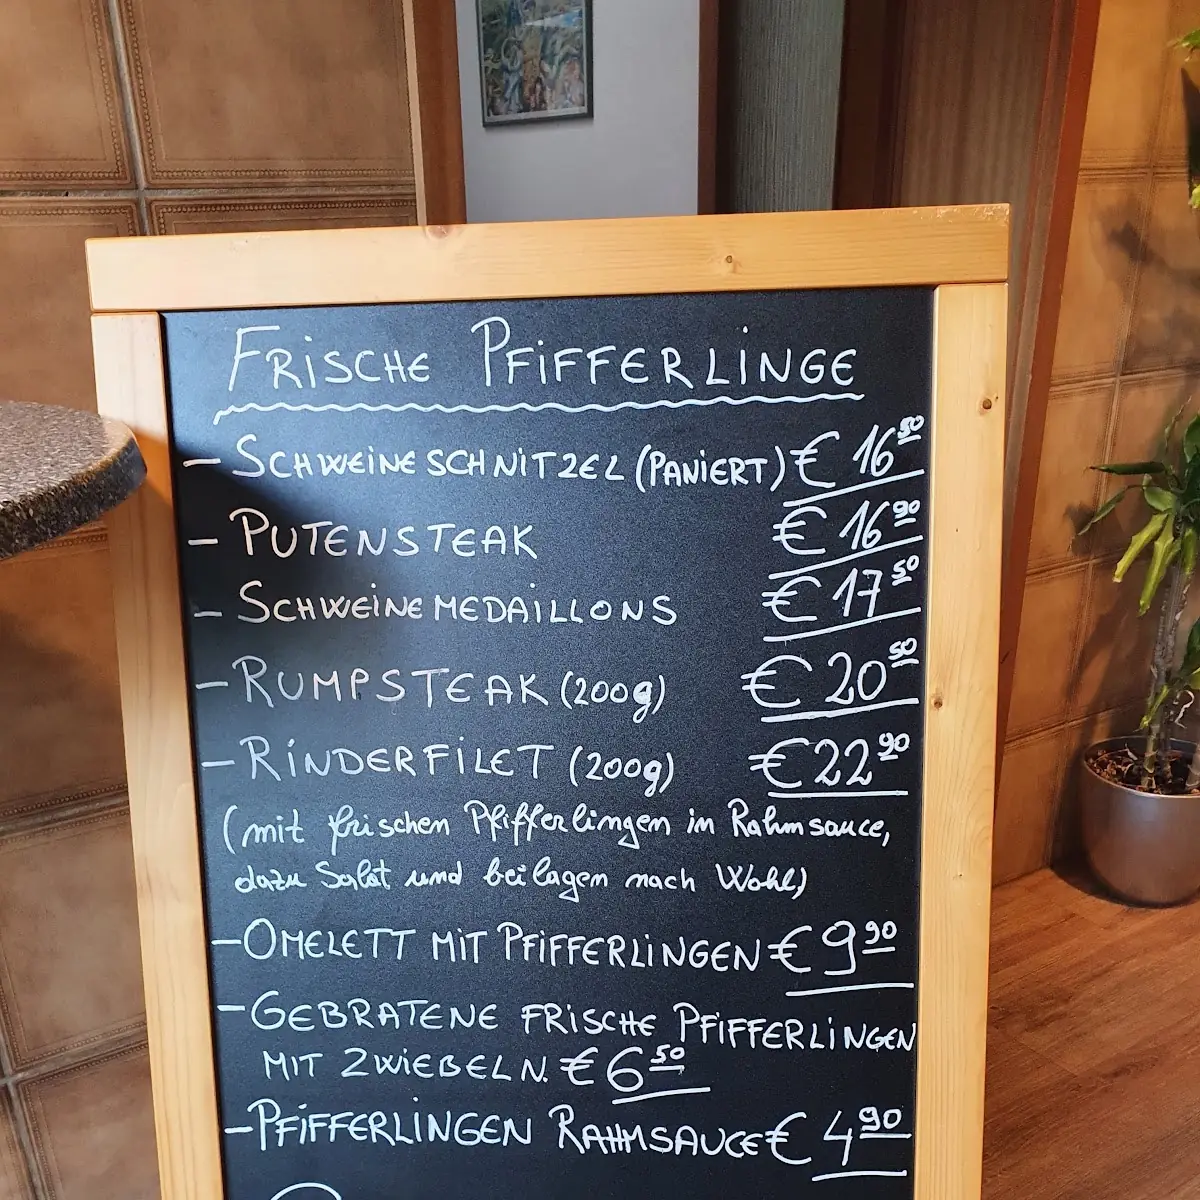 FRISCHE PFIFFERLINGE
- SCHWEINESCHNITZEL (PANIERT) € 16 50
- PUTENSTEAK € 16 90
- SCHWEINEMEDAILLONS € 17 50
- RUMPSTEAK (200g) € 20 50
- RINDERFILET (200g) € 22 90
(mit frischen Pfifferlingen in Rahmsauce,
dazu Salat und beilagen nach Wohl)
- OMELETT MIT PFIFFERLINGEN € 9 90
- GEBRATENE FRISCHE PFIFFERLINGEN
MIT ZWIEBELN. € 6 50
- PFIFFERLINGEN RAHMSAUCE € 4 90